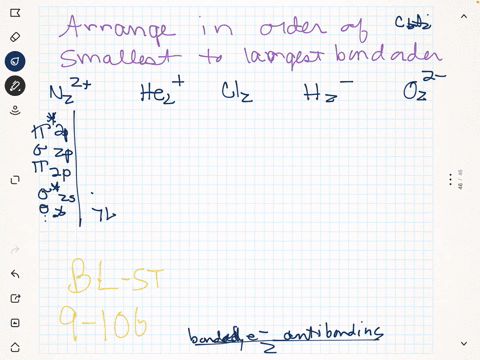 Arrange in order of
smallest to largest bond order
N₂²⁺ He₂⁺ Cl₂ H₂⁻ O₂²⁻
π* 2p
σ 2p
π 2p
σ* 2s
BL-ST
9-106
bonded e⁻ antibonding
2